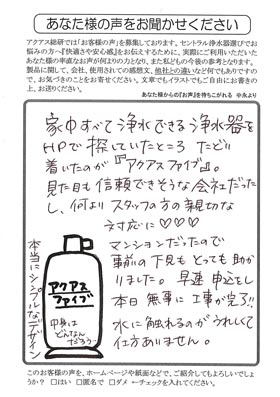 あなた様の声をお聞かせください
アクアス総研では「お客様の声」を募集しております。セントラル浄水器選びで
お悩みの方へ『快適さや安心感』をお伝えするために、実際にご利用いただいた
あなた様の率直なお声が何よりの力となり、また私どもの今後の参考となります。
製品に関して、会社、使用されての感想文、他社との違いなど何でもありですの
で、お気づきのことをお寄せください。文章でもイラストでもご自由にお書きの
上、お送りください。
あなた様からの『お声』を待ちこがれる 中永より
家中すべて浄水できる浄水器を
HPで探していたところ たどり
着いたのが『アクアスファイブ』。
見た目も信頼できそうな会社だった
し、何より スタッフの方の親切な
対応に♡♡♡
マンションだったので
事前の下見も とっても助か
りました。早速 申込をし
本日 無事に 工事が完了!!
水に触れるのが うれしくて
仕方ありません。
本当にシンプルなデザイン
アクアス
ファイブ
中身は
どんなん
だろう~
このお客様の声を、ホームページや紙面などで、ご紹介してもよろしいでしょ
うか? □はい □匿名で □ダメ ←チェックを入れてください。